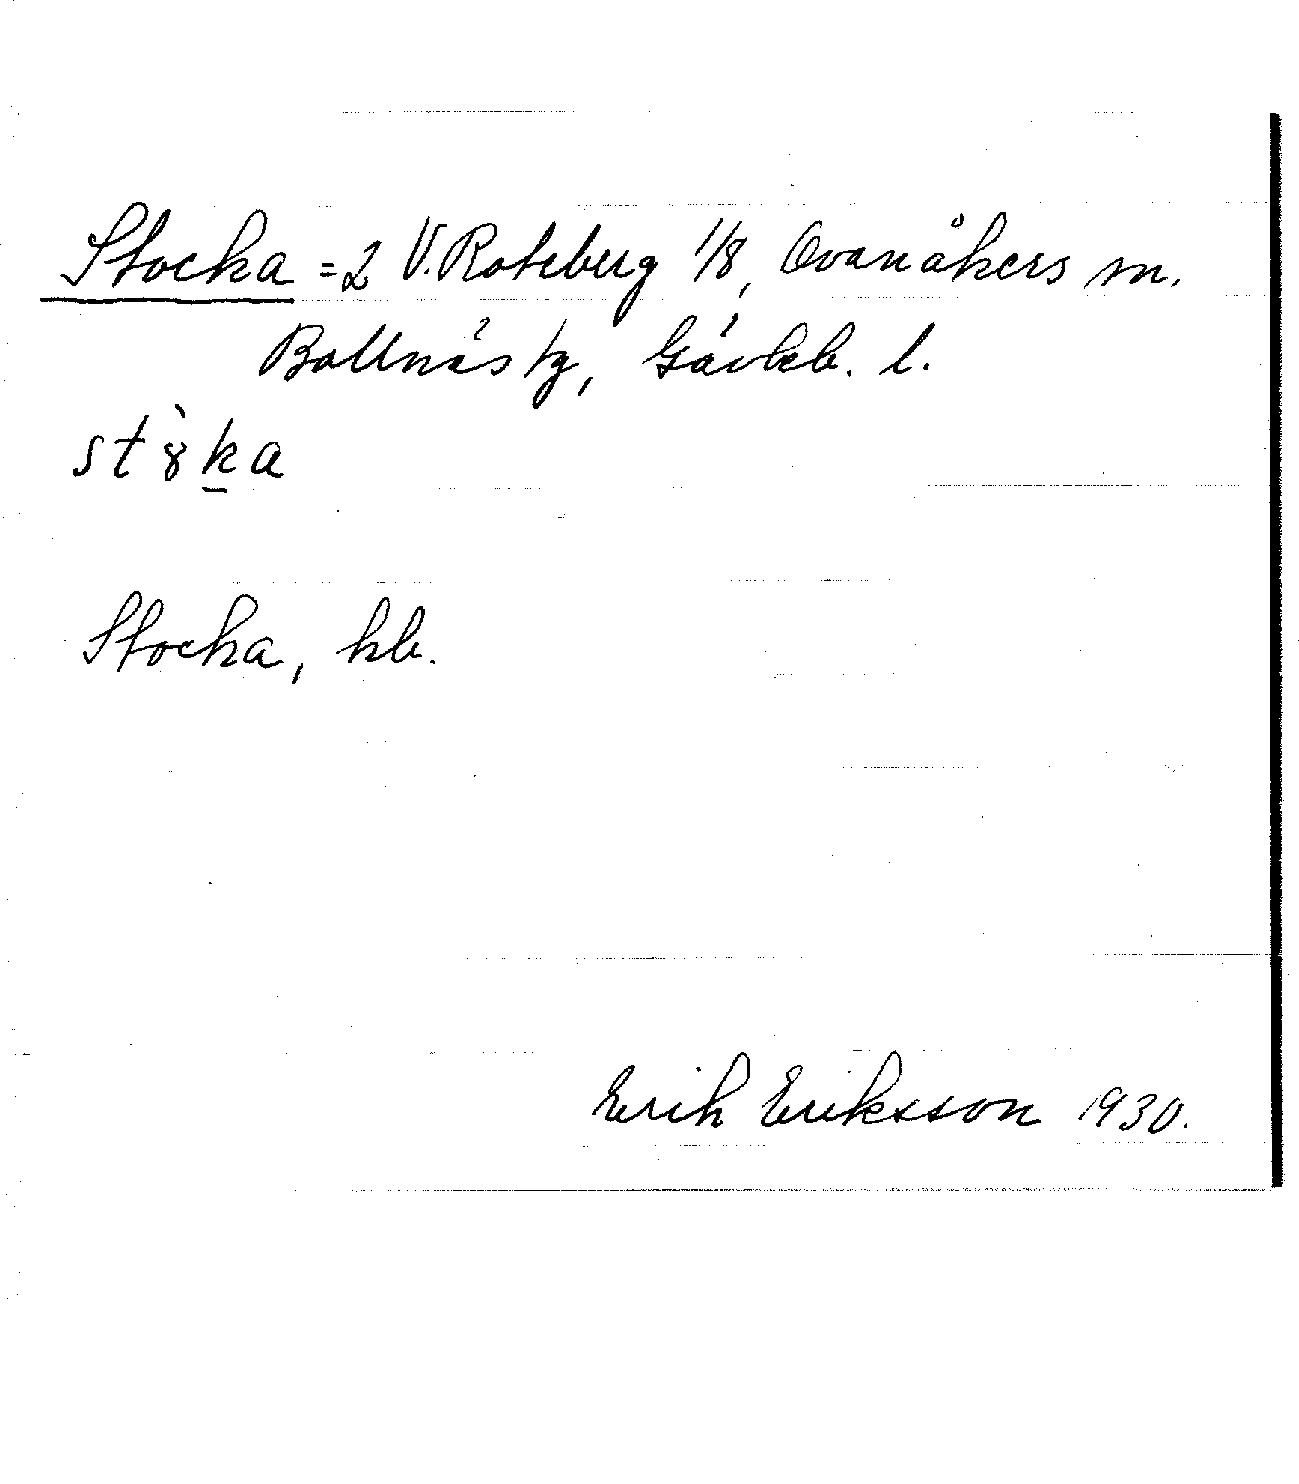 Stocka = 2 V. Roteberg 1/8, Ovanåkers sn.
Bollnäs tg, Gävleb. l.
st8̀ḵa
Stocka, hb.
Erik Eriksson 1930.